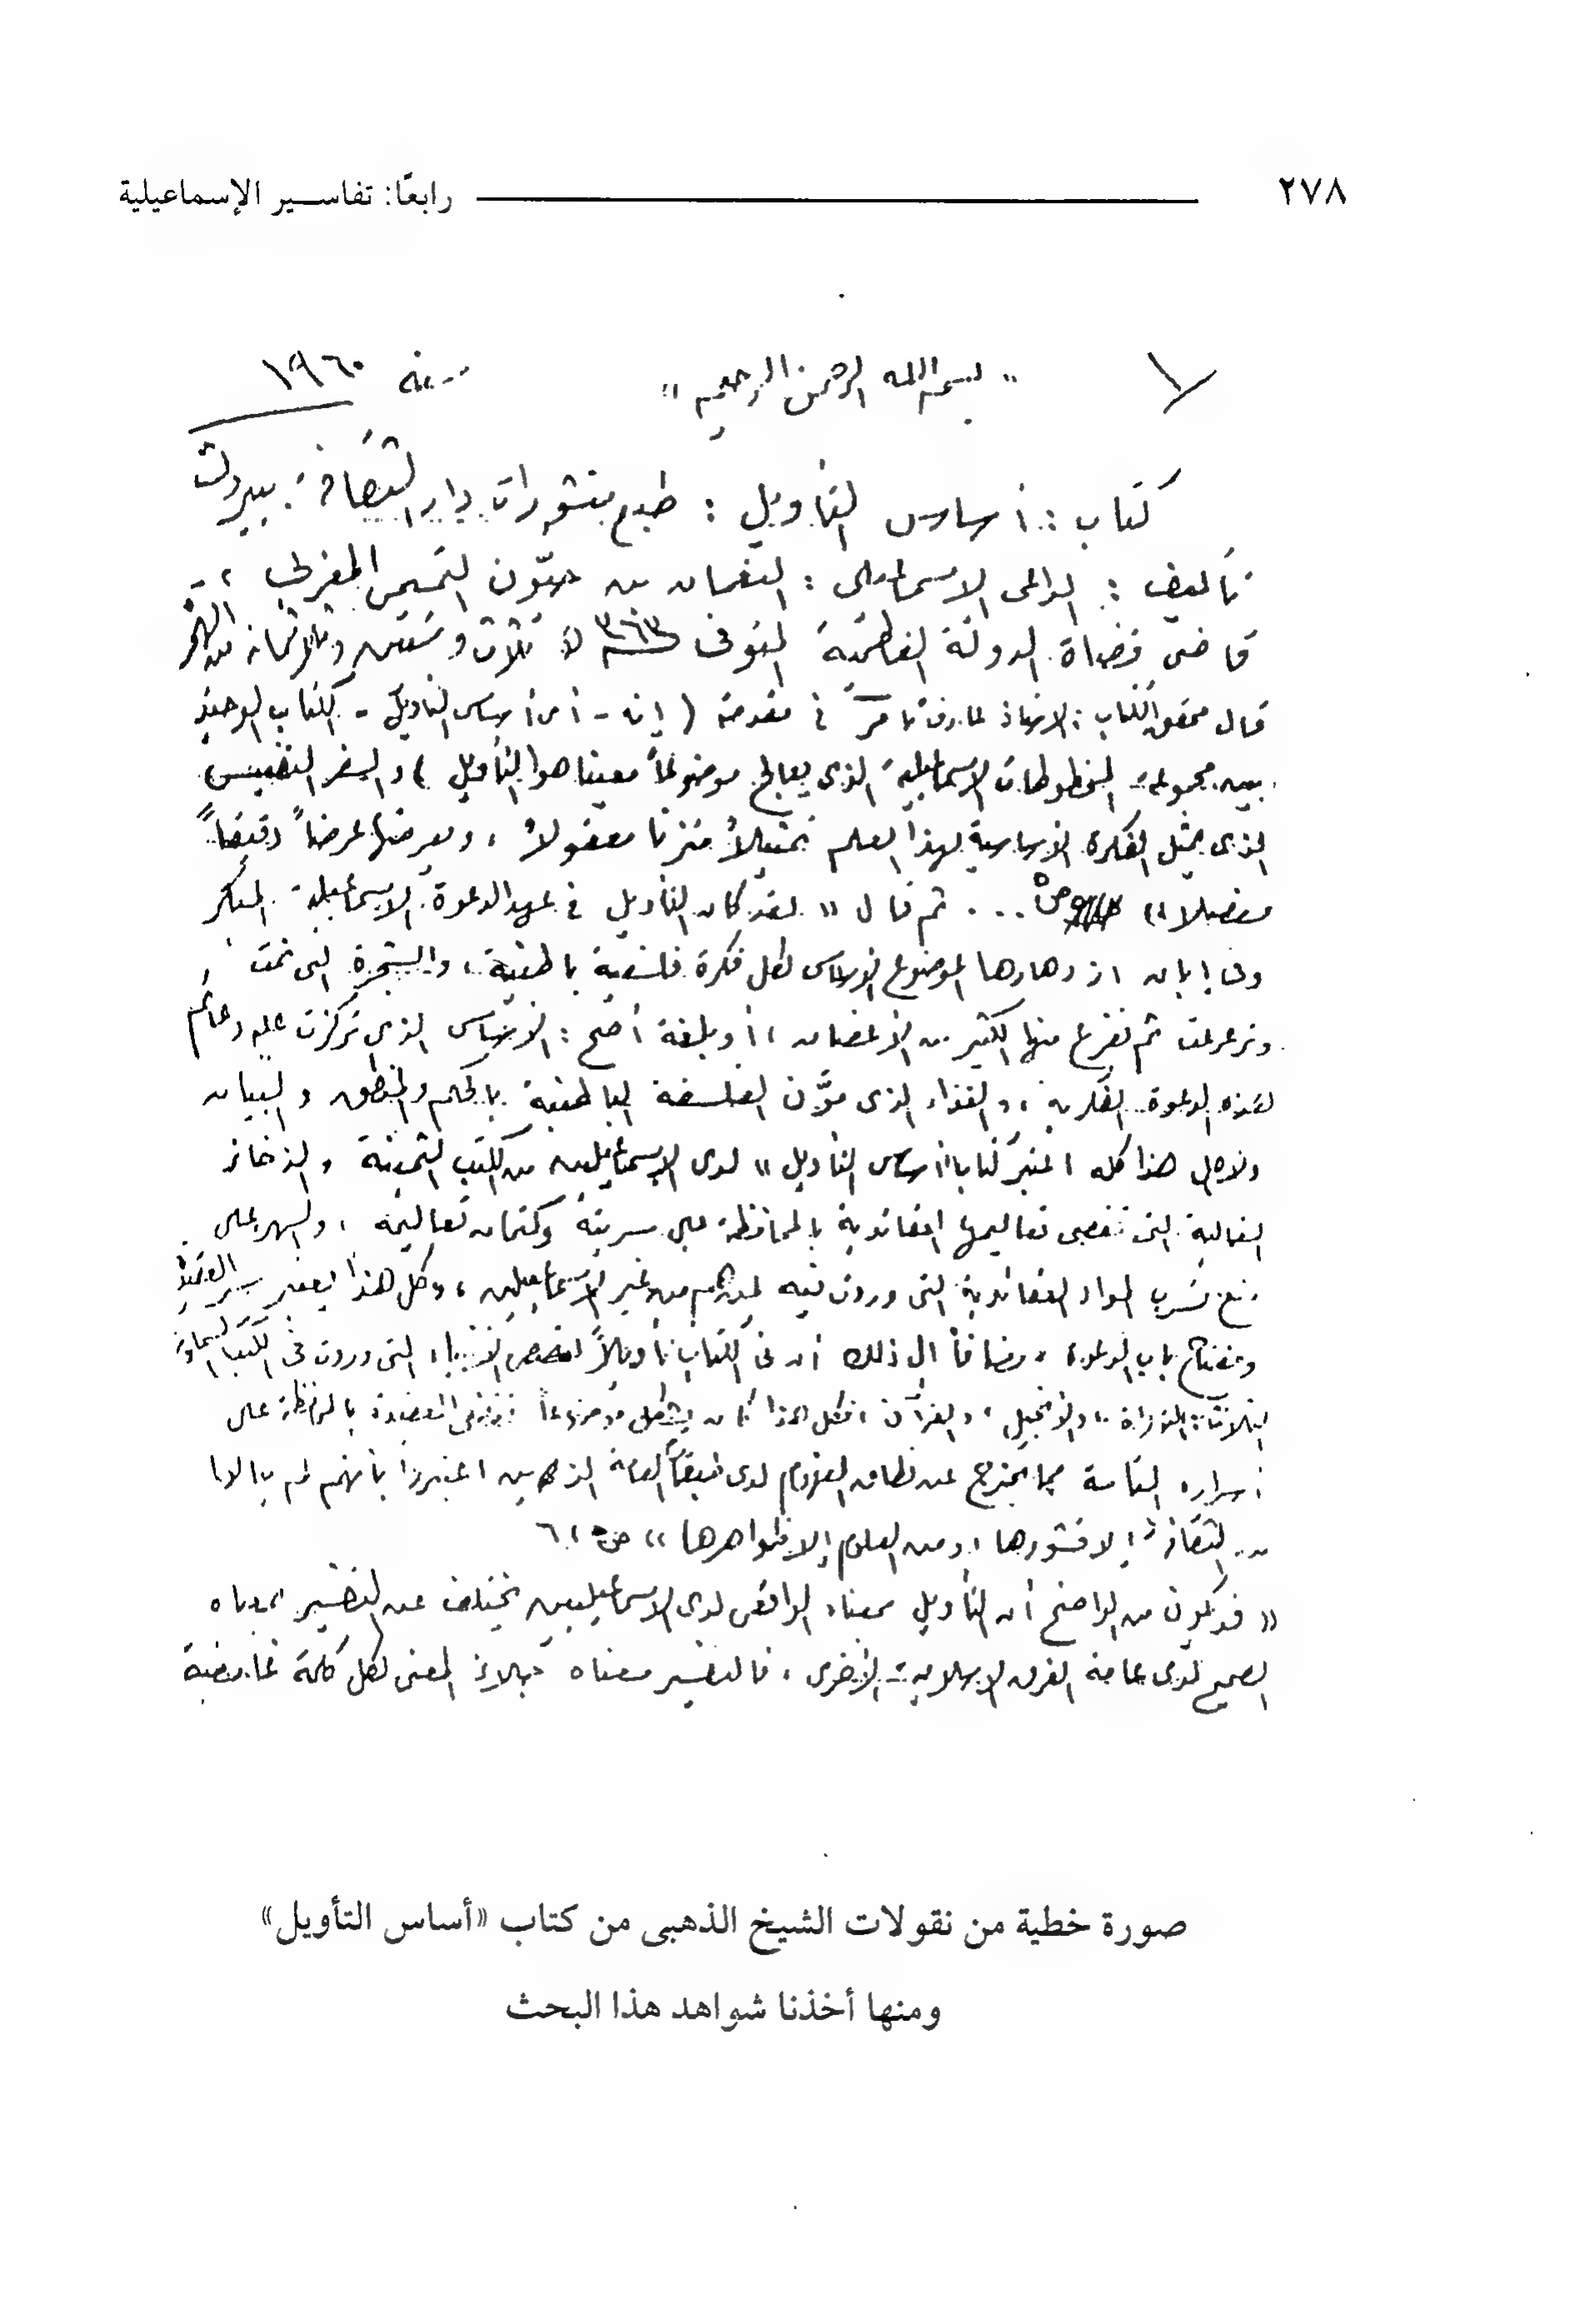 ٢٧٨
رابعًا: تفاسير الإسماعيلية
١
" بسم الله الرحمن الرحيم "
سنة ١٩٦٠
كتاب : أساس التأويل : طبع منشورات دار الثقافة . بيروت
تأليف : الداعى الاسماعيلى : النعمان بن حيّون التميمى المغربى ،
قاضى قضاة الدولة الفاطمية المتوفى سنة ٣٦٣ ثلاث وستين وثلاثمائة من الهجرة
قال محقق الكتاب : الاستاذ عارف تامر فى مقدمته ( إنه - أى أساس التأويل - الكتاب الوحيد
بين مجموعة المخطوطات الإسماعيلية الذى يعالج موضوعاً معينا هو التأويل ) والسفر النفيس
الذى يمثل الفكرة الأساسية لهذا العلم تمثيلاً متزنا معقولاً ، ويعرضها عرضاً دقيقاً
مفصلا » ص٥ ... ثم قال « لقد كان التأويل فى عهد الدعوة الإسماعيلية المبكر
وفى إبان ازدهارها الموضوع الأساسى لكل فكرة فلسفية باطنية ، والشجرة التى نمت
وترعرعت ثم تفرع منها الكثير من الأغصان ، أو بلغة أصح : الأساس الذى تركزت عليه دعائم
هذه الدعوة الفكرية ، والغذاء الذى موَّن الفلسفة الباطنية بالحكم والمنطق والبيان
ولأجل هذا كله اعتبر كتاب "أساس التأويل" لدى الإسماعيليين من الكتب الثمينة والذخائر
الغالية التى تقضى تعاليمها العقائدية بالمحافظة على سريته وكتمان تعاليمه ، والسهر على
منع تسرب المواد العقائدية التى وردت فيه لغيرهم من غير الإسماعيليين ، وكل هذا يعتبر سر العقيدة
ومفتاح باب الدعوة ، ومضافاً إلى ذلك أن فى الكتاب تأويلاً لقصص الأنبياء التى وردت فى الكتب السماوية
الثلاثة : التوراة ، والإنجيل ، والقرآن ، فكل هذا كان يشكل موضوعاً تقضى العقيدة بالمحافظة على
أسراره التامة مما يخرج عن نطاق المفهوم لدى طبقات العامة الذين اعتبروا بأنهم لم ينالوا
من الثقافة إلا قشورها ، ومن العلوم إلا ظواهرها » ص ٥ ، ٦
« قد يكون من الواضح أن التأويل بمعناه الواقعى لدى الإسماعيليين يختلف عن التفسير بمعناه
الصحيح لدى عامة الفرق الإسلامية الأخرى ، فالتفسير معناه جلاء المعنى لكل كلمة غامضة
صورة خطية من نقولات الشيخ الذهبى من كتاب «أساس التأويل»
ومنها أخذنا شواهد هذا البحث